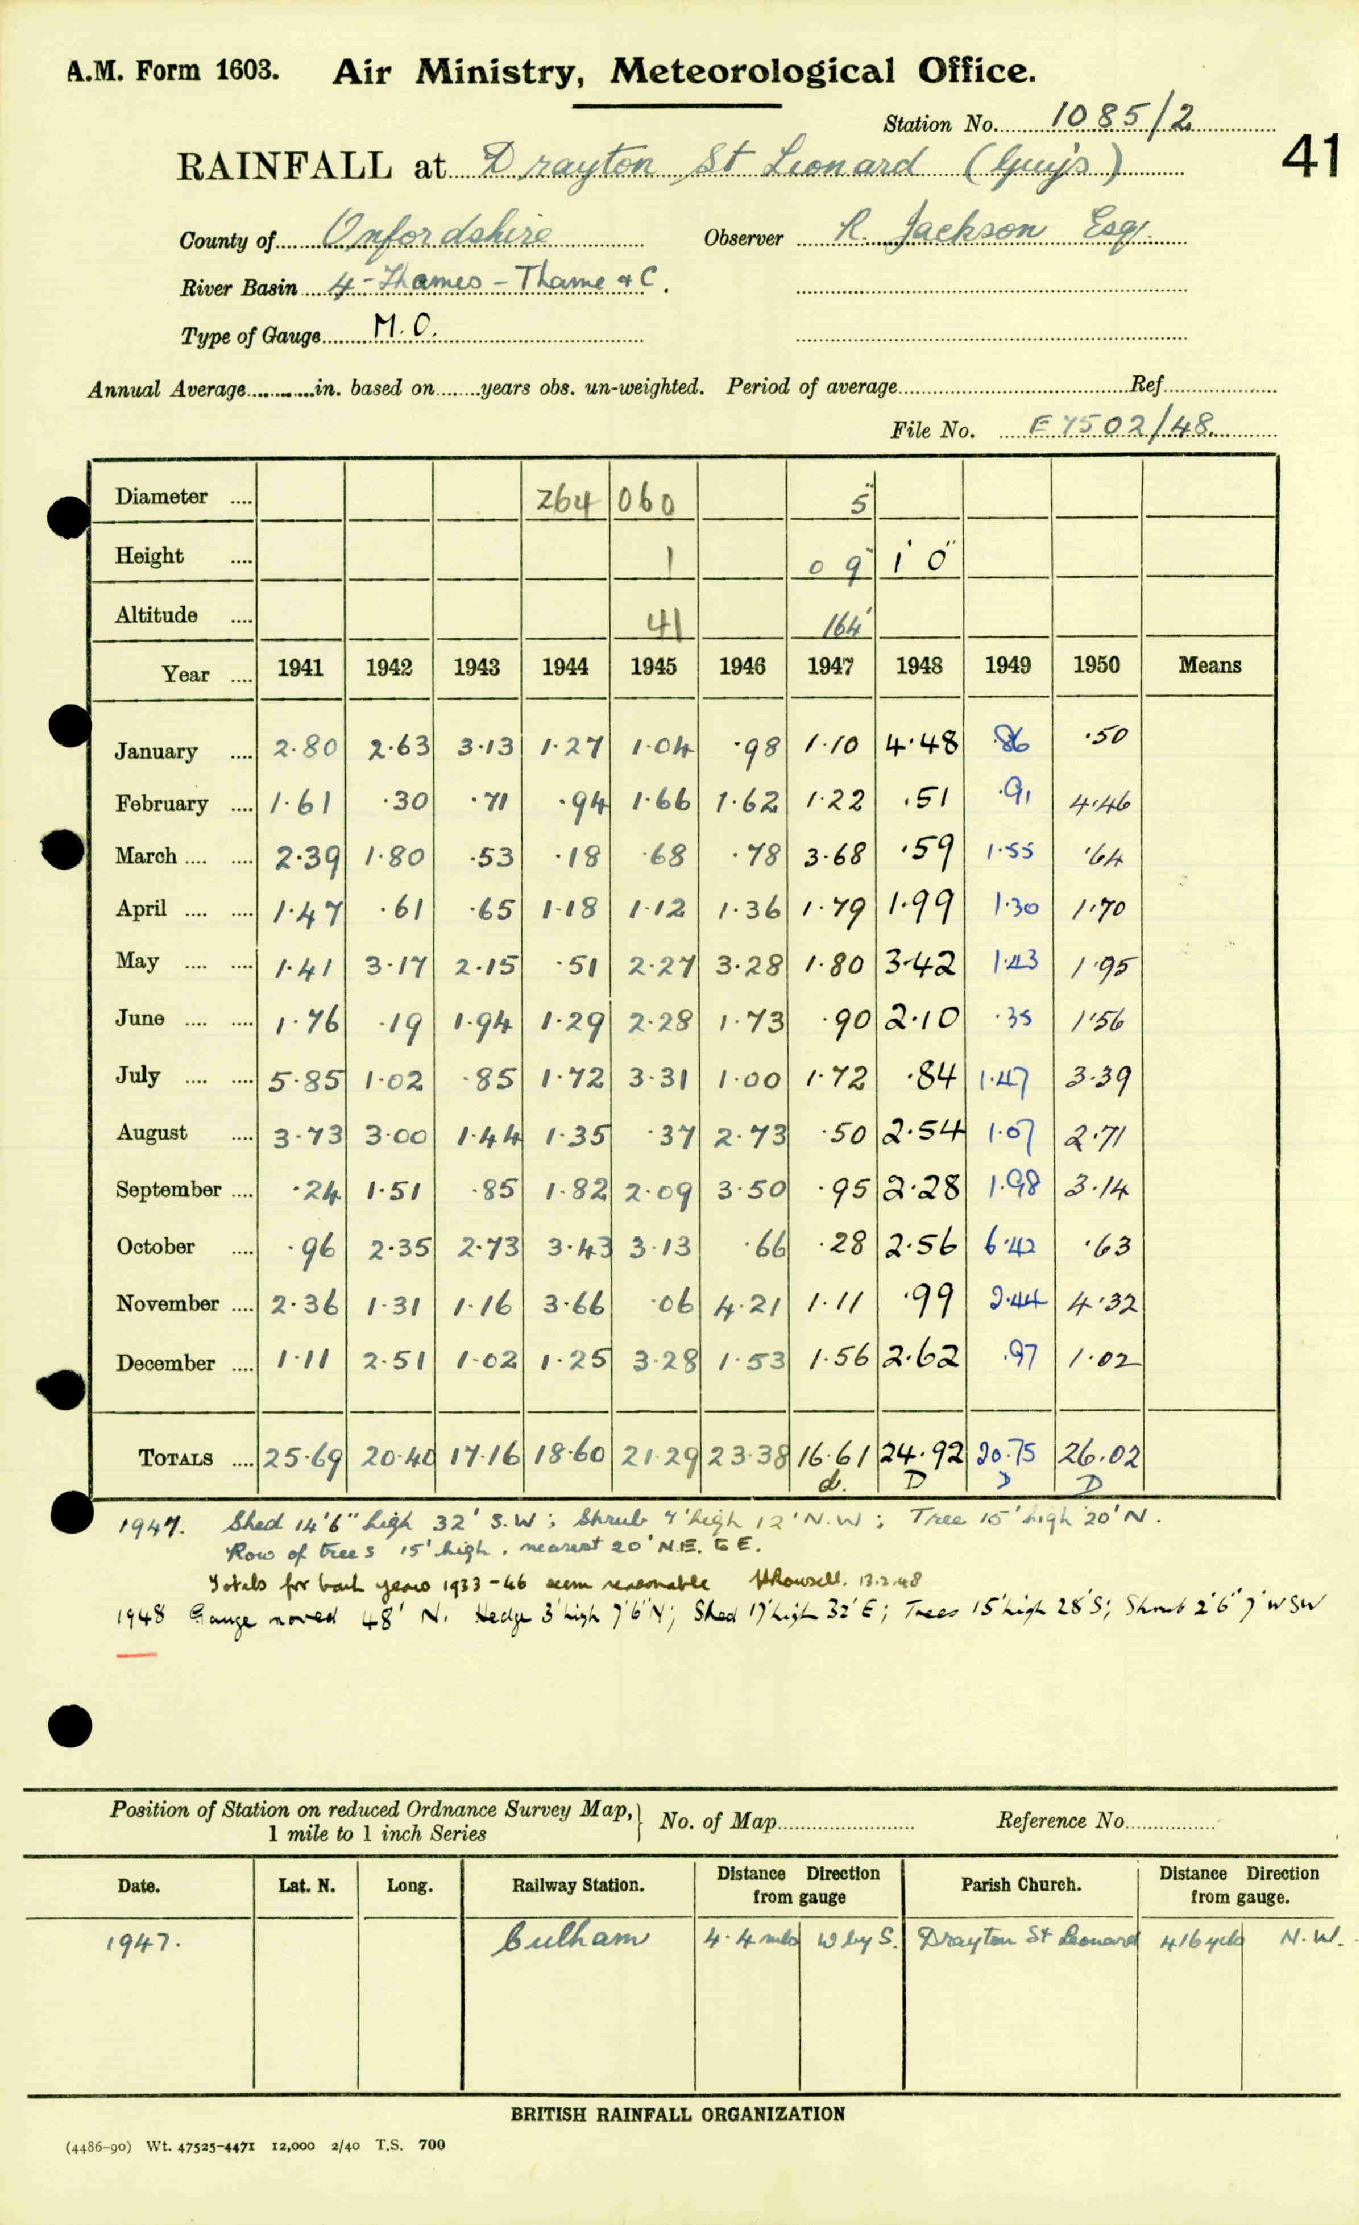 A.M. Form 1603. Air Ministry, Meteorological Office.
Station No. 1085/2
41
RAINFALL at Drayton St Leonard (Guy's)
County of Oxfordshire Observer R. Jackson Esq.
River Basin 4 - Thames - Thame & C.
Type of Gauge M.O.
Annual Average in. based on years obs. un-weighted. Period of average Ref
File No. E 7502/48
Diameter 264 060 5"
Height 1 0 9" 1' 0"
Altitude 41 164'
Year 1941 1942 1943 1944 1945 1946 1947 1948 1949 1950 Means
January 2.80 2.63 3.13 1.27 1.04 .98 1.10 4.48 .86 .50
February 1.61 .30 .71 .94 1.66 1.62 1.22 .51 .91 4.46
March 2.39 1.80 .53 .18 .68 .78 3.68 .59 1.55 .64
April 1.47 .61 .65 1.18 1.12 1.36 1.79 1.99 1.30 1.70
May 1.41 3.17 2.15 .51 2.27 3.28 1.80 3.42 1.43 1.95
June 1.76 .19 1.94 1.29 2.28 1.73 .90 2.10 .35 1.56
July 5.85 1.02 .85 1.72 3.31 1.00 1.72 .84 1.47 3.39
August 3.73 3.00 1.44 1.35 .37 2.73 .50 2.54 1.07 2.71
September .24 1.51 .85 1.82 2.09 3.50 .95 2.28 1.98 3.14
October .96 2.35 2.73 3.43 3.13 .66 .28 2.56 6.42 .63
November 2.36 1.31 1.16 3.66 .06 4.21 1.11 .99 2.44 4.32
December 1.11 2.51 1.02 1.25 3.28 1.53 1.56 2.62 .97 1.02
TOTALS 25.69 20.40 17.16 18.60 21.29 23.38 16.61 24.92 20.75 26.02
d. D D D
1947. Shed 14'6" high 32' S.W; Shrub 7' high 12' N.W; Tree 15' high 20' N.
Row of trees 15' high, nearest 20' N.E. to E.
Totals for back years 1933-46 seem reasonable HRowsell. 13.2.48
1948 Gauge moved 48' N. Hedge 3' high 7'6" N; Shed 17' high 32' E; Trees 15' high 28' S; Shrub 2'6" 7' WSW
Position of Station on reduced Ordnance Survey Map, No. of Map Reference No.
1 mile to 1 inch Series
Date. Lat. N. Long. Railway Station. Distance Direction from gauge Parish Church. Distance Direction from gauge.
1947. Culham 4.4 mls W by S. Drayton St Leonard 416 yds N.W.
BRITISH RAINFALL ORGANIZATION
(4486-90) Wt. 47525-4471 12,000 2/40 T.S. 700